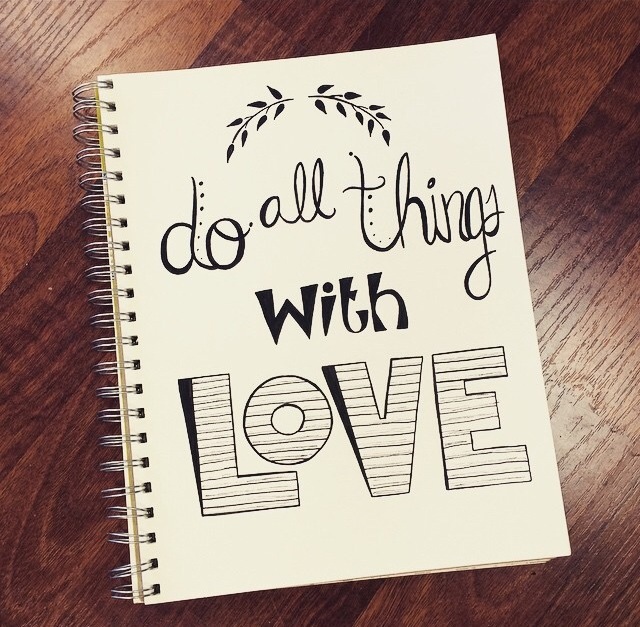 do all things
with
LOVE